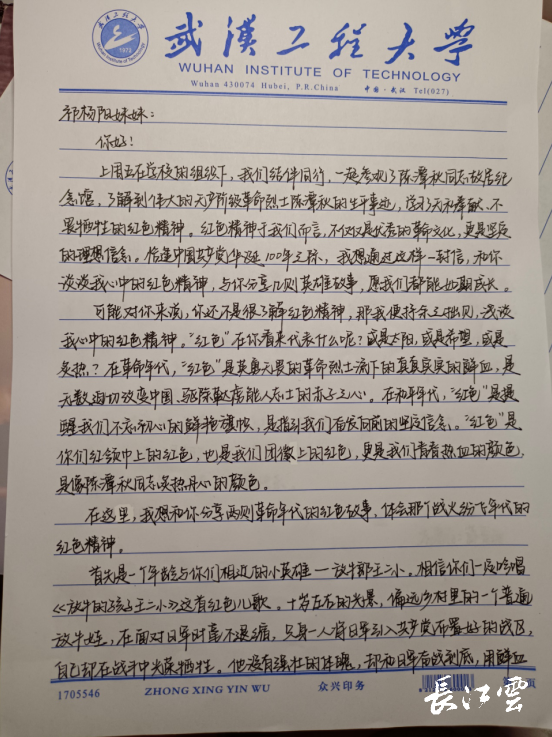 武汉工程大学
1972
武漢工程大学
WUHAN INSTITUTE OF TECHNOLOGY
Wuhan 430074 Hubei, P.R.China 中国·武汉 Tel(027)
郭杨阳妹妹：
你好！
上周五在学校的组织下，我们结伴同行，一起参观了陈潭秋同志故居纪
念馆，了解到伟大的无产阶级革命烈士陈潭秋的生平事迹，学习无私奉献、不
畏牺牲的红色精神。红色精神于我们而言，不仅仅是优秀的革命文化，更是坚定
的理想信念。恰逢中国共产党华诞100年之际，我想通过这样一封信，和你
谈谈我心中的红色精神，与你分享几则英雄故事，愿我们都能如期成长。
可能对你来说，你还不是很了解红色精神，那我便持余之拙见，浅谈
我心中的红色精神。“红色”在你看来代表什么呢？或是太阳，或是希望，或是
炙热？在革命年代，“红色”是英勇无畏的革命烈士流下的真真实实的鲜血，是
无数迫切改变中国、驱除鞑虏能人志士的赤子之心。在和平年代，“红色”是提
醒我们不忘初心的鲜艳旗帜，是指引我们奋发向前的坚定信念。“红色”是
你们红领巾上的红色，也是我们团徽上的红色，更是我们青春热血的颜色，
是像陈潭秋同志炙热丹心的颜色。
在这里，我想和你分享两则革命年代的红色故事，体会那个战火纷飞年代的
红色精神。
首先是一个年龄与你们相近的小英雄—放牛郎王二小。相信你们一度吟唱
《放牛的孩子王二小》这首红色儿歌。十岁左右的光景，偏远乡村里的一个普通
放牛娃，在面对日军时毫不退缩，只身一人将日军引入共产党布置好的战区，
自己却在战斗中光荣牺牲。他没有强壮的体魄，却和日军奋战到底，用鲜血
1705546 ZHONG XING YIN WU 众兴印务 页
長江雲